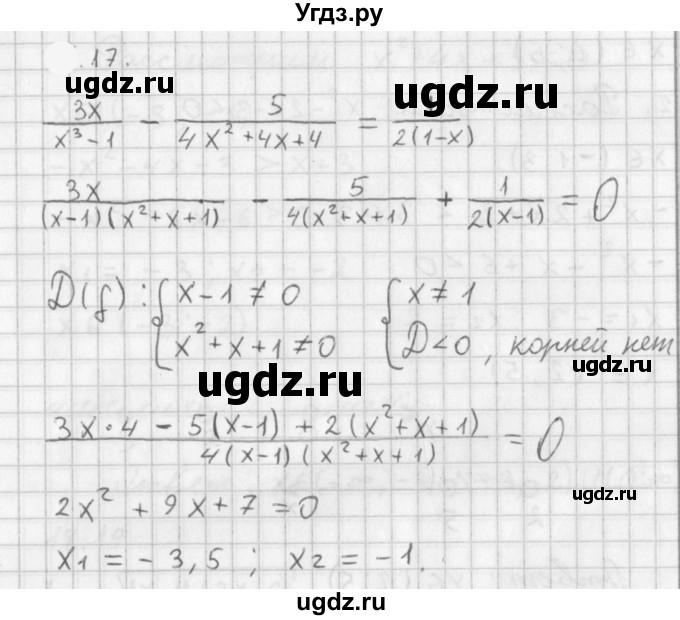 Угдз.ру
.17.
ugdz.ru ugdz.ru
3x/(x³-1) - 5/(4x²+4x+4) = /(2(1-x))
3x/((x-1)(x²+x+1)) - 5/(4(x²+x+1)) + 1/(2(x-1)) = 0
D(f): { x-1≠0 { x≠1
x²+x+1≠0 D<0, корней нет
ugdz.ru ugdz.ru
(3x·4 - 5(x-1) + 2(x²+x+1))/(4(x-1)(x²+x+1)) = 0
2x² + 9x + 7 = 0
ugdz.ru
x1 = -3,5; x2 = -1.
ugdz.ru